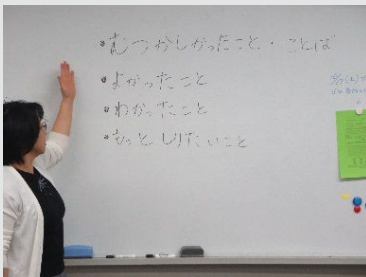 •むつかしかったこと・ことば
•よかったこと
•わかったこと
•もっと しりたいこと